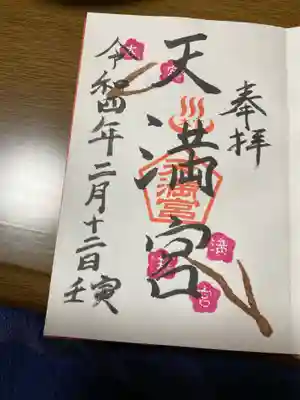 奉拝
天満宮
天満宮
令和四年二月十二日
壬寅
満
宮